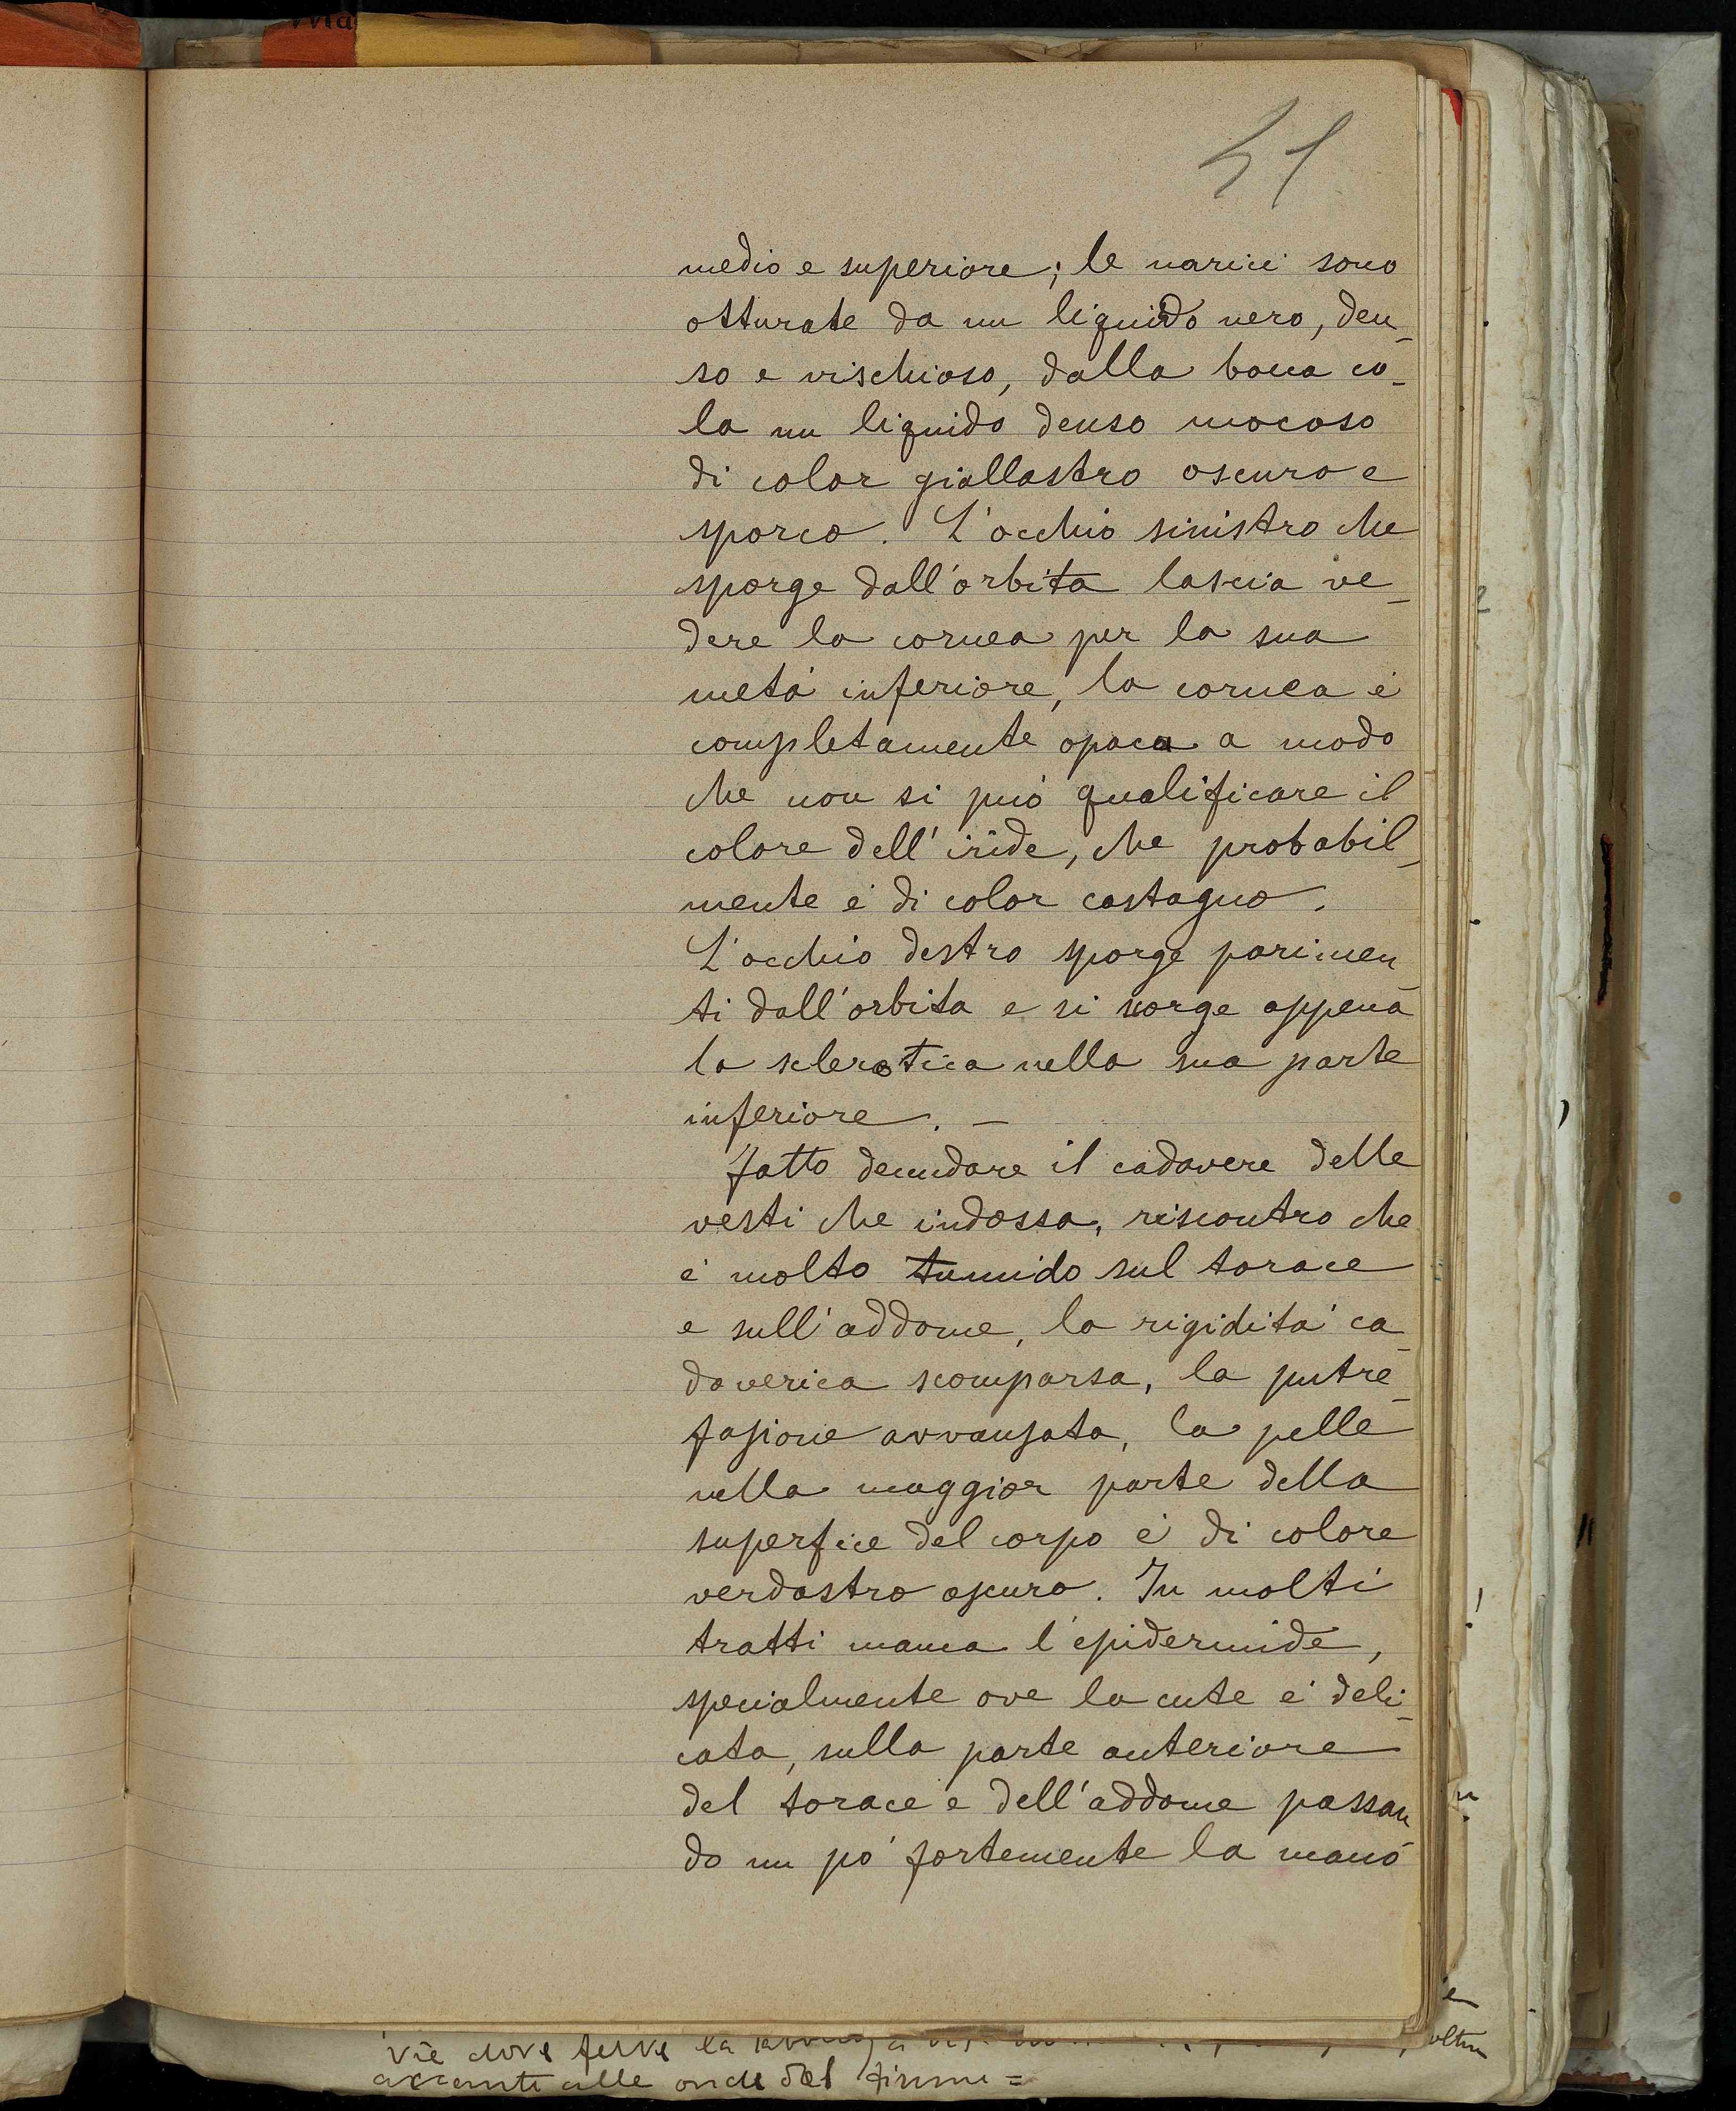 51
medio e superiore; le narici sono
otturate da un liquido nero, den_
so e vischioso, dalla bocca co_
la un liquido denso mocoso
di color giallastro oscuro e
sporco. L'occhio sinistro che
sporge dall'orbita lascia ve_
dere la cornea per la sua
metá inferiore, la cornea é
completamente opaca a modo
che non si puó qualificare il
colore dell'iride, che probabil_
mente é di color castagno.
L'occhio destro sporge parimen_
ti dall'orbita e si scorge appena
la sclerotica nella sua parte
inferiore. —
Fatto denudare il cadavere delle
vesti che indossa, riscontro che
é molto tumido sul torace
e sull'addome, la rigiditá ca_
daverica scomparsa, la putre_
fazione avvanzata, la pelle
nella maggior parte della
superfice del corpo é di colore
verdastro oscuro. In molti
tratti manca l'epidermide,
specialmente ove la cute é deli_
cata, sulla parte anteriore
del torace e dell'addome passan_
do un pó fortemente la mano
vie dove ferve la
accanto alle onde del fiume =